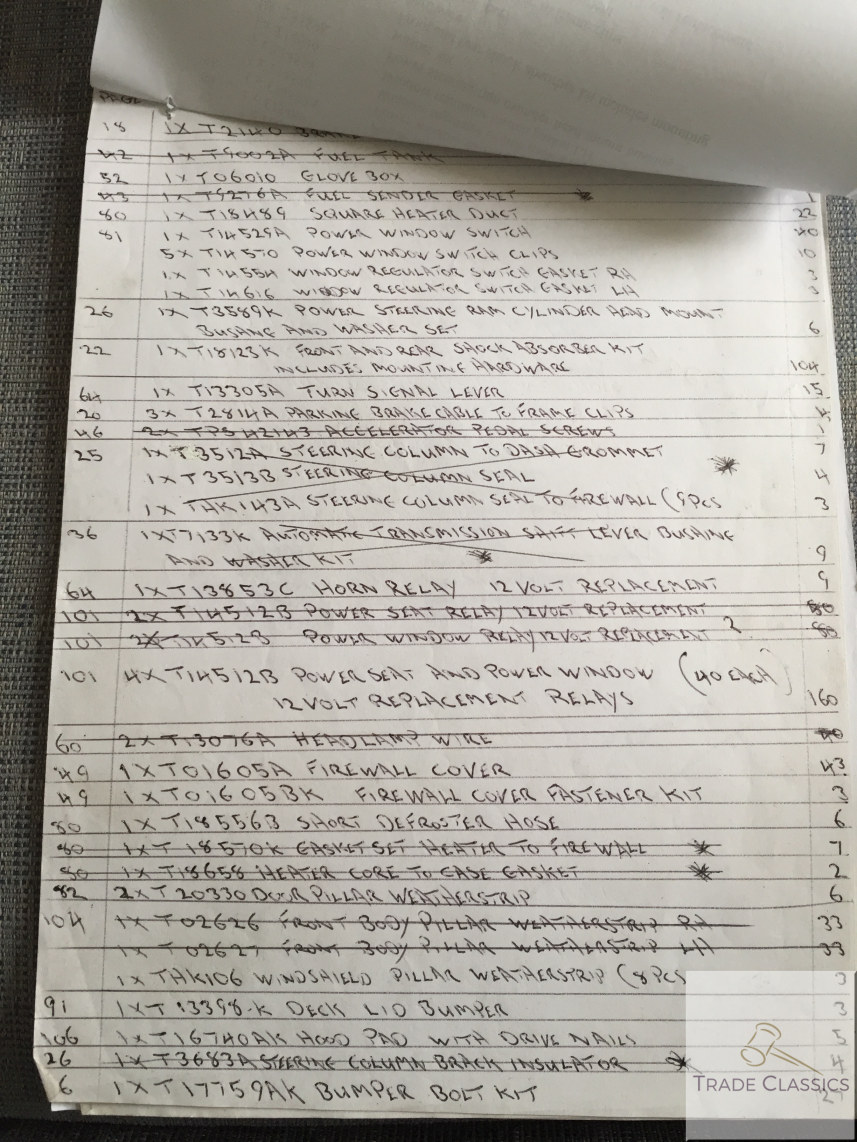 PAGE
18 1X T2140
42 1X T9002A FUEL TANK
32 1X T06010 GLOVE BOX
43 1X T9276A FUEL SENDER GASKET 1
80 1X T18489 SQUARE HEATER DUCT 22
81 1X T14529A POWER WINDOW SWITCH 40
5X T14570 POWER WINDOW SWITCH CLIPS 10
1X T14554 WINDOW REGULATOR SWITCH GASKET RH 3
1X T14616 WINDOW REGULATOR SWITCH GASKET LH 3
26 1X T3589K POWER STEERING RAM CYLINDER HEAD MOUNT
BUSHING AND WASHER SET 6
22 1X T18123K FRONT AND REAR SHOCK ABSORBER KIT
INCLUDES MOUNTING HARDWARE 104
64 1X T13305A TURN SIGNAL LEVER 15
20 3X T2814A PARKING BRAKE CABLE TO FRAME CLIPS 4
46 2X TPS42143 ACCELERATOR PEDAL SCREWS 1
25 1X T3512A STEERING COLUMN TO DASH GROMMET 7
1X T3513B STEERING COLUMN SEAL 4
1X THK143A STEERING COLUMN SEAL TO FIREWALL (9PCS 3
36 1X T7133K AUTOMATIC TRANSMISSION SHIFT LEVER BUSHING
AND WASHER KIT 9
64 1X T13853C HORN RELAY 12 VOLT REPLACEMENT 9
101 2X T14512B POWER SEAT RELAY 12 VOLT REPLACEMENT 80
101 2X T14512B POWER WINDOW RELAY 12 VOLT REPLACEMENT 2 80
101 4X T14512B POWER SEAT AND POWER WINDOW (40 EACH)
12 VOLT REPLACEMENT RELAYS 160
60 2X T13076A HEADLAMP WIRE
49 1X T01605A FIREWALL COVER 43
49 1X T01605BK FIREWALL COVER FASTENER KIT 3
80 1X T18556B SHORT DEFROSTER HOSE 6
80 1X T18570K GASKET SET HEATER TO FIREWALL 7
80 1X T18658 HEATER CORE TO CASE GASKET 2
82 2X T20330 DOOR PILLAR WEATHERSTRIP 6
104 1X T02626 FRONT BODY PILLAR WEATHERSTRIP RH 33
1X T02627 FRONT BODY PILLAR WEATHERSTRIP LH 33
1X THK106 WINDSHIELD PILLAR WEATHERSTRIP (8PCS 3
91 1X T13398-K DECK LID BUMPER 3
106 1X T16740AK HOOD PAD WITH DRIVE NAILS 5
26 1X T3683A STEERING COLUMN BRACK INSULATOR 4
6 1X T17759AK BUMPER BOLT KIT
TRADE CLASSICS